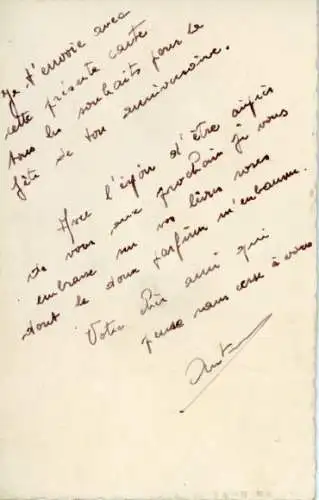 Je t'envoie avec
cette présente carte
tous les souhaits pour la
fête de ton anniversaire.
Avec l'espoir d'être auprès
de vous aux prochain je vous
embrasse sur vos lèvres roses
dont le doux parfum m'embaume.
Votre ami qui
pense sans cesse à vous